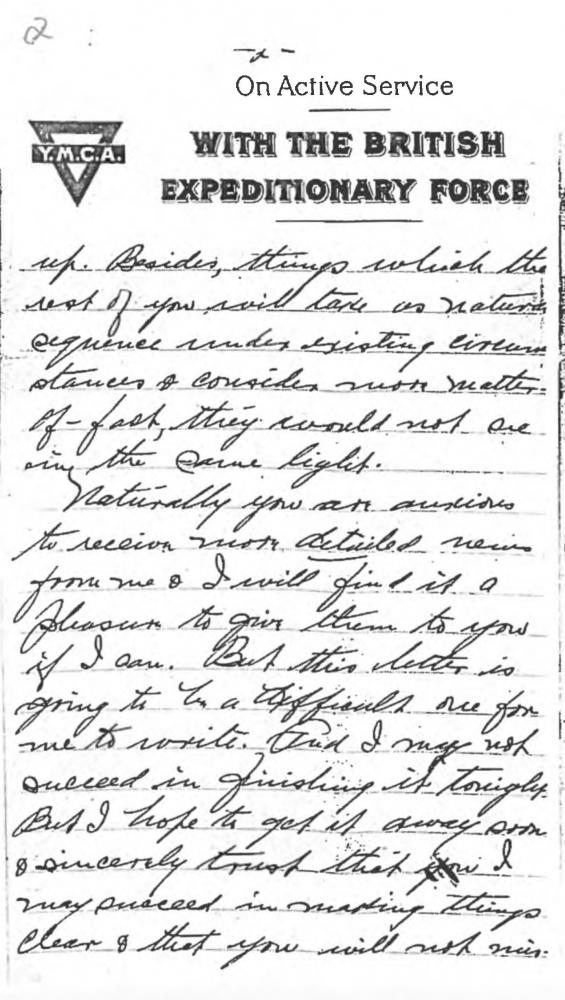 2
- 2 -
On Active Service
Y.M.C.A.
WITH THE BRITISH
EXPEDITIONARY FORCE
up. Besides, things which the
rest of you will take as natural
sequence under existing circum
stances & consider more matter-
of-fact, they would not see
in the same light.
Naturally you are anxious
to receive more detailed news
from me & I will find it a
pleasure to give them to you
if I can. But this letter is
going to be a difficult one for
me to write. And I may not
succeed in finishing it tonight.
But I hope to get it away soon
& sincerely trust that I
may succeed in making things
clear & that you will not mis-